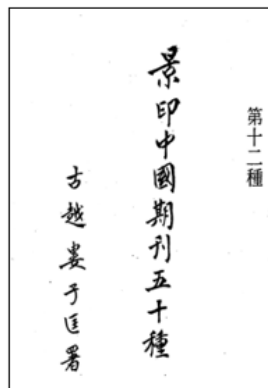 第十二種
景印中國期刊五十種
古越婁子匡署